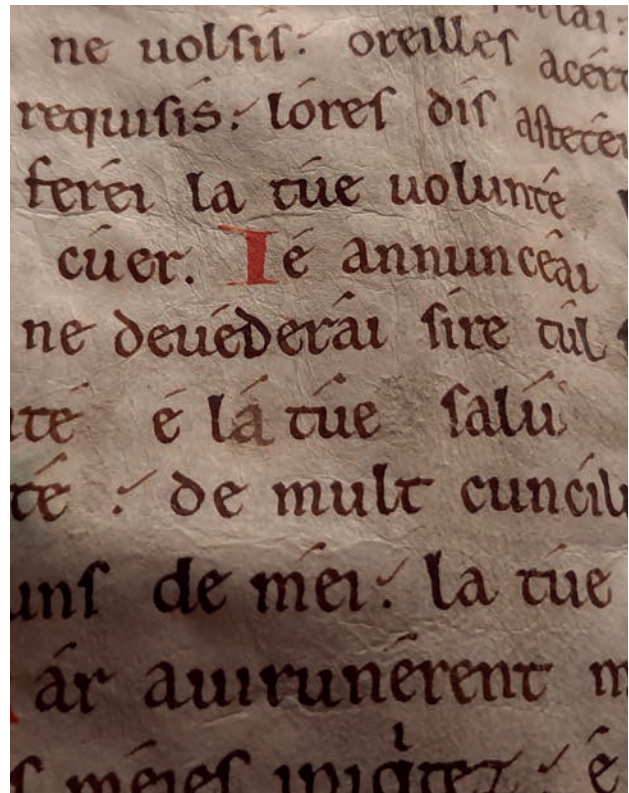 ne uolſis: oreilleſ acér
requiſis: lóreſ diſ aſtetéi
feréi la túe uolunté
cúer. Ié annuncéai
ne deuéderái ſire túl
té é lá túe ſalú
té : de mult cuncil
unſ de méi: la túe
ár auirunérent m
ſ méieſ iniq̇tez : é